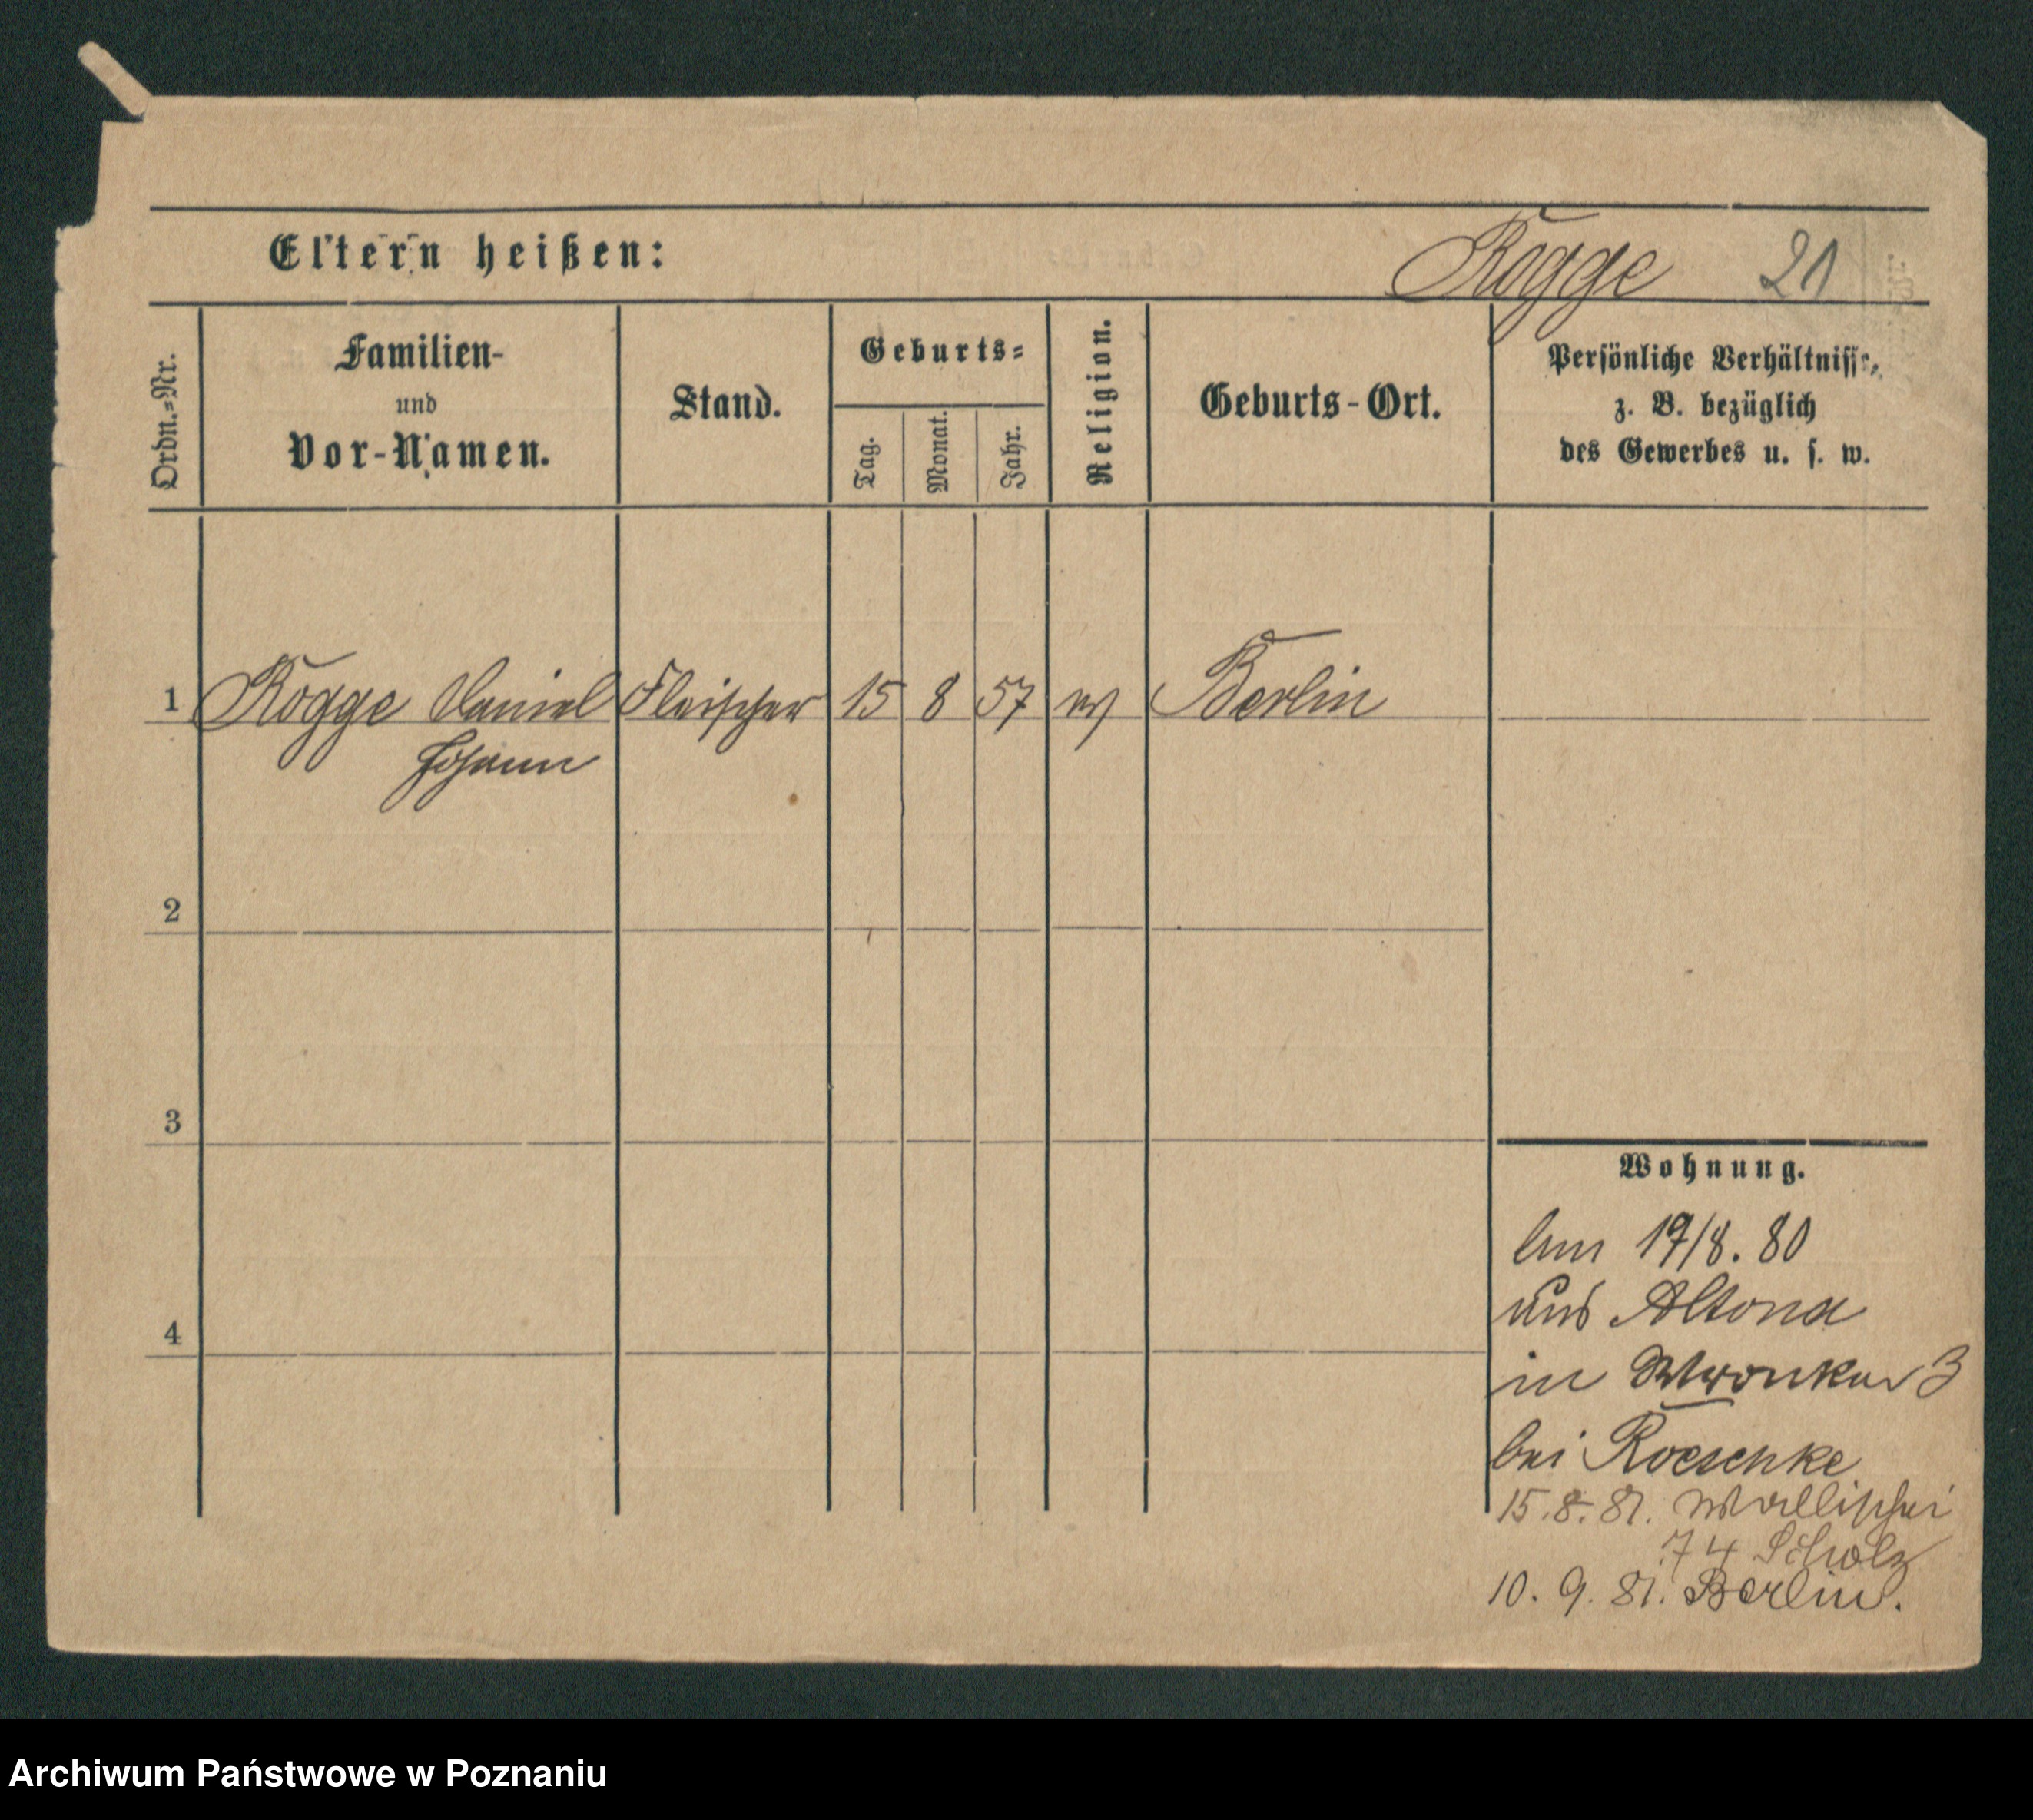 Eltern heißen: Rogge 21
Ordn.=Nr.
Familien-
und
Vor-Namen.
Stand.
Geburts=
Tag.
Monat.
Jahr.
Religion.
Geburts-Ort.
Persönliche Verhältnisse,
z. B. bezüglich
des Gewerbes u. s. w.
1 Rogge Daniel Fleischer 15 8 57 ev Berlin
Johann
2
3
4
Wohnung.
19/8. 80
aus Altona
in Wronker 3
bei Roeschke
15.8.81. Wallischei
74 Scholz
10. 9. 81. Berlin.
Archiwum Państwowe w Poznaniu